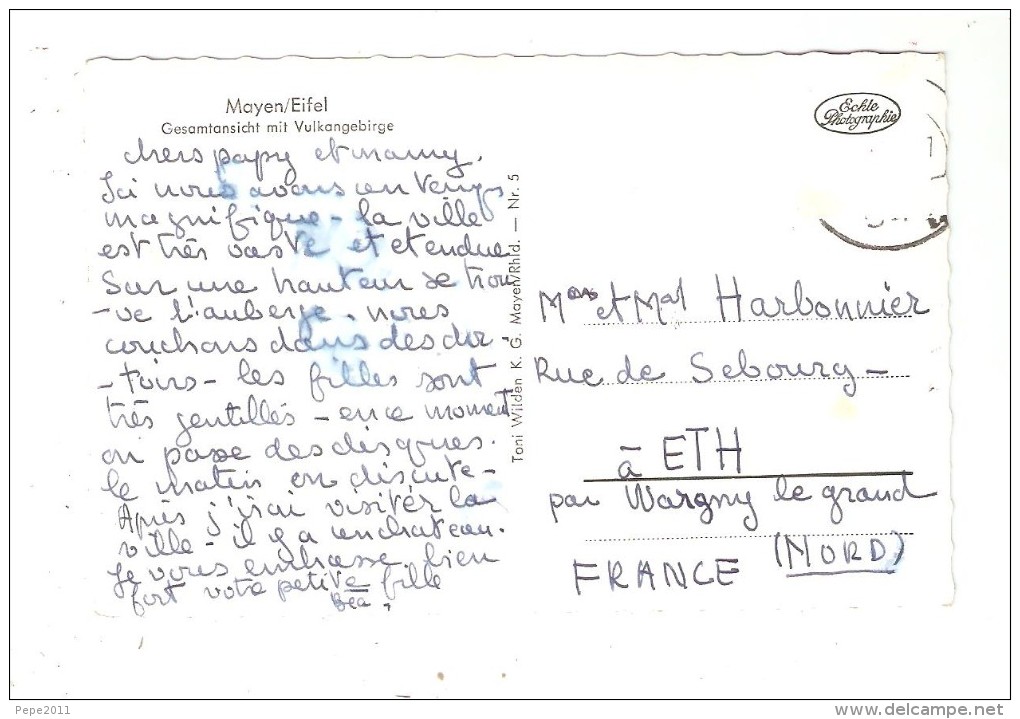 Mayen/Eifel
Gesamtansicht mit Vulkangebirge
chers papy et mamy.
Ici nous avons un temps
magnifique - la ville
est très vaste et etendue
Sur une hauteur se trou
-ve l'auberge. nous
couchons dans des dor-
-toirs - les filles sont
très gentilles - en ce moment
on passe des disques.
le matin on discute -
Après j'irai visiter la
ville - il y a un chateau.
Je vous embrasse bien
fort votre petite fille
Béa.
Toni Wilden K. G. Mayen/Rhld. — Nr. 5
Echte
Photographie
et Harbonnier
Rue de Sebourg -
à ETH
par Wargny le grand
(NORD)
FRANCE
Pepe2011
www.delcampe.net